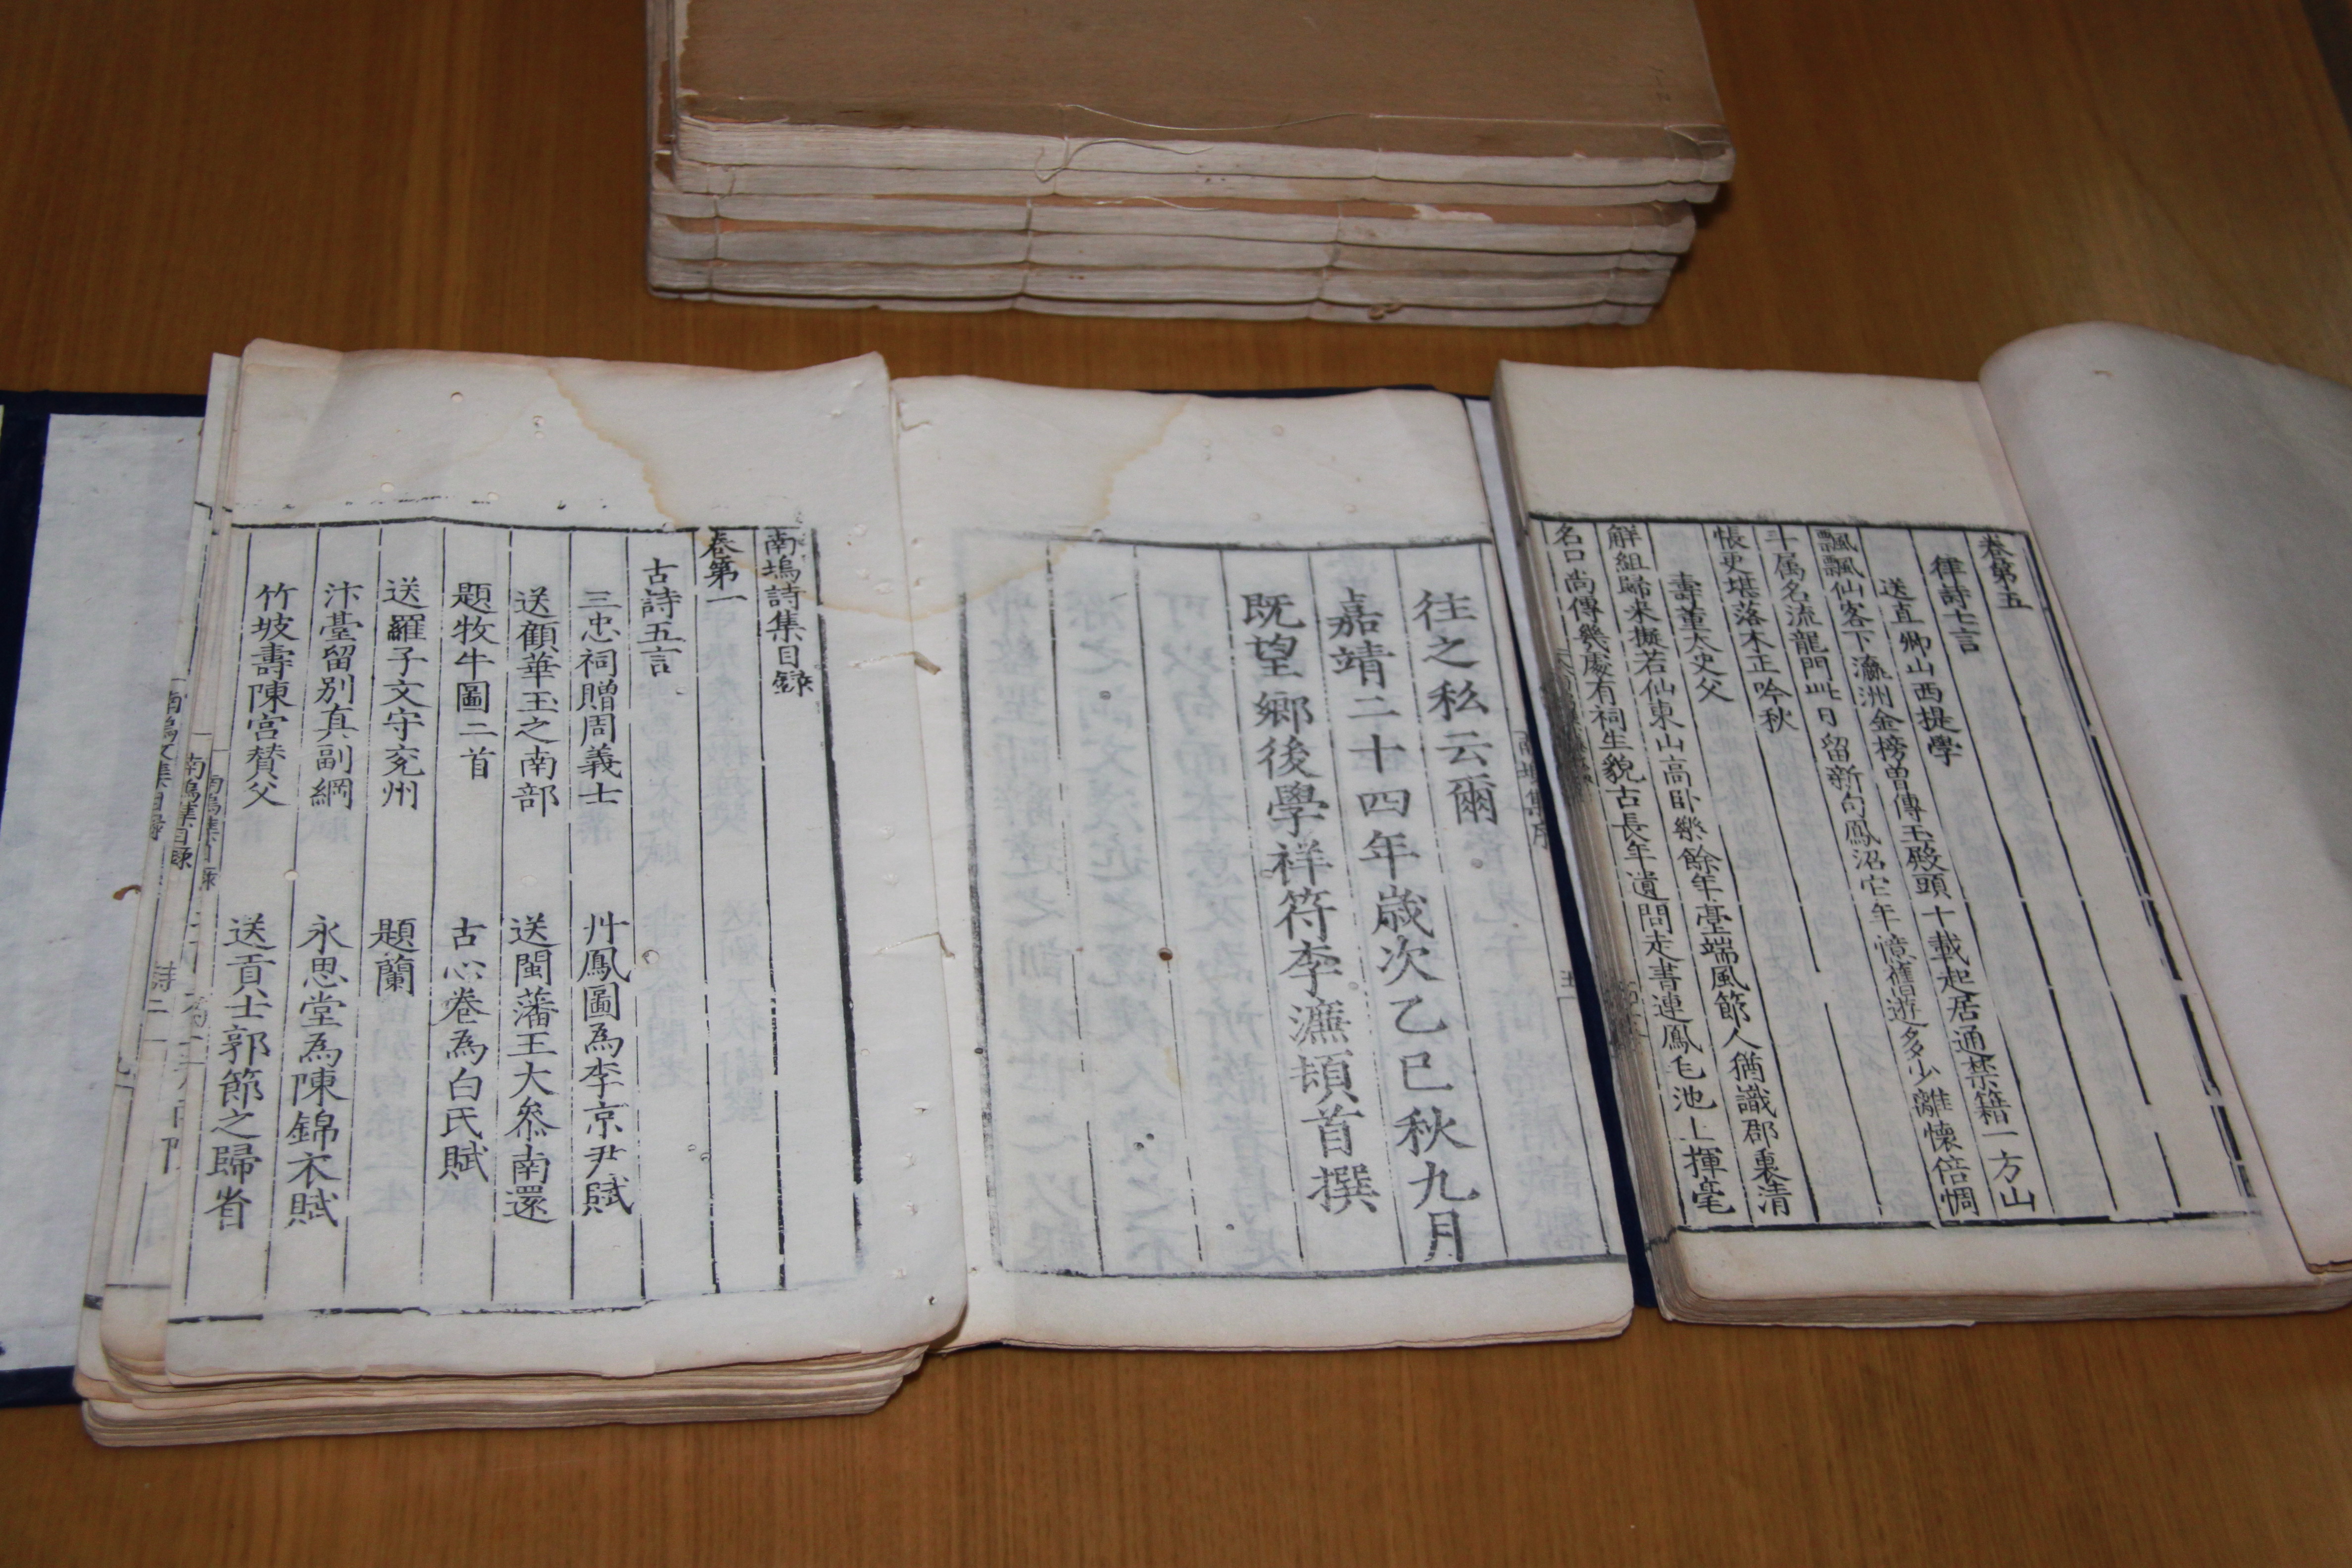 卷第五
律詩七言
送直卿山西提學
飄飄仙客下瀛洲金榜曾傳玉殿頭十載起居通禁籍一方山
斗属名流龍門此日留新句鳳沼它年憶舊遊多少離懷倍惆
悵更堪落木正吟秋
壽董太史父
解組歸來擬若仙東山高卧樂餘年臺端風節人猶識郡裏清
名口尚傳幾處有祠生貌古長年遺問走書連鳳毛池上揮毫
南塢集序
往之私云爾
嘉靖二十四年歲次乙巳秋九月
既望鄉後學祥符李濂頓首撰
南塢詩集目錄
卷第一
古詩五言
三忠祠贈周義士 丹鳳圖為李京尹賦
送顧華玉之南部 送閩藩王大叅南還
題牧牛圖二首 古心卷為白氏賦
送羅子文守兖州 題蘭
汴臺留別真副綱 永思堂為陳錦衣賦
竹坡壽陳宮贊父 送貢士郭節之歸省
南塢集目录
南塢集目录
南塢文集目録